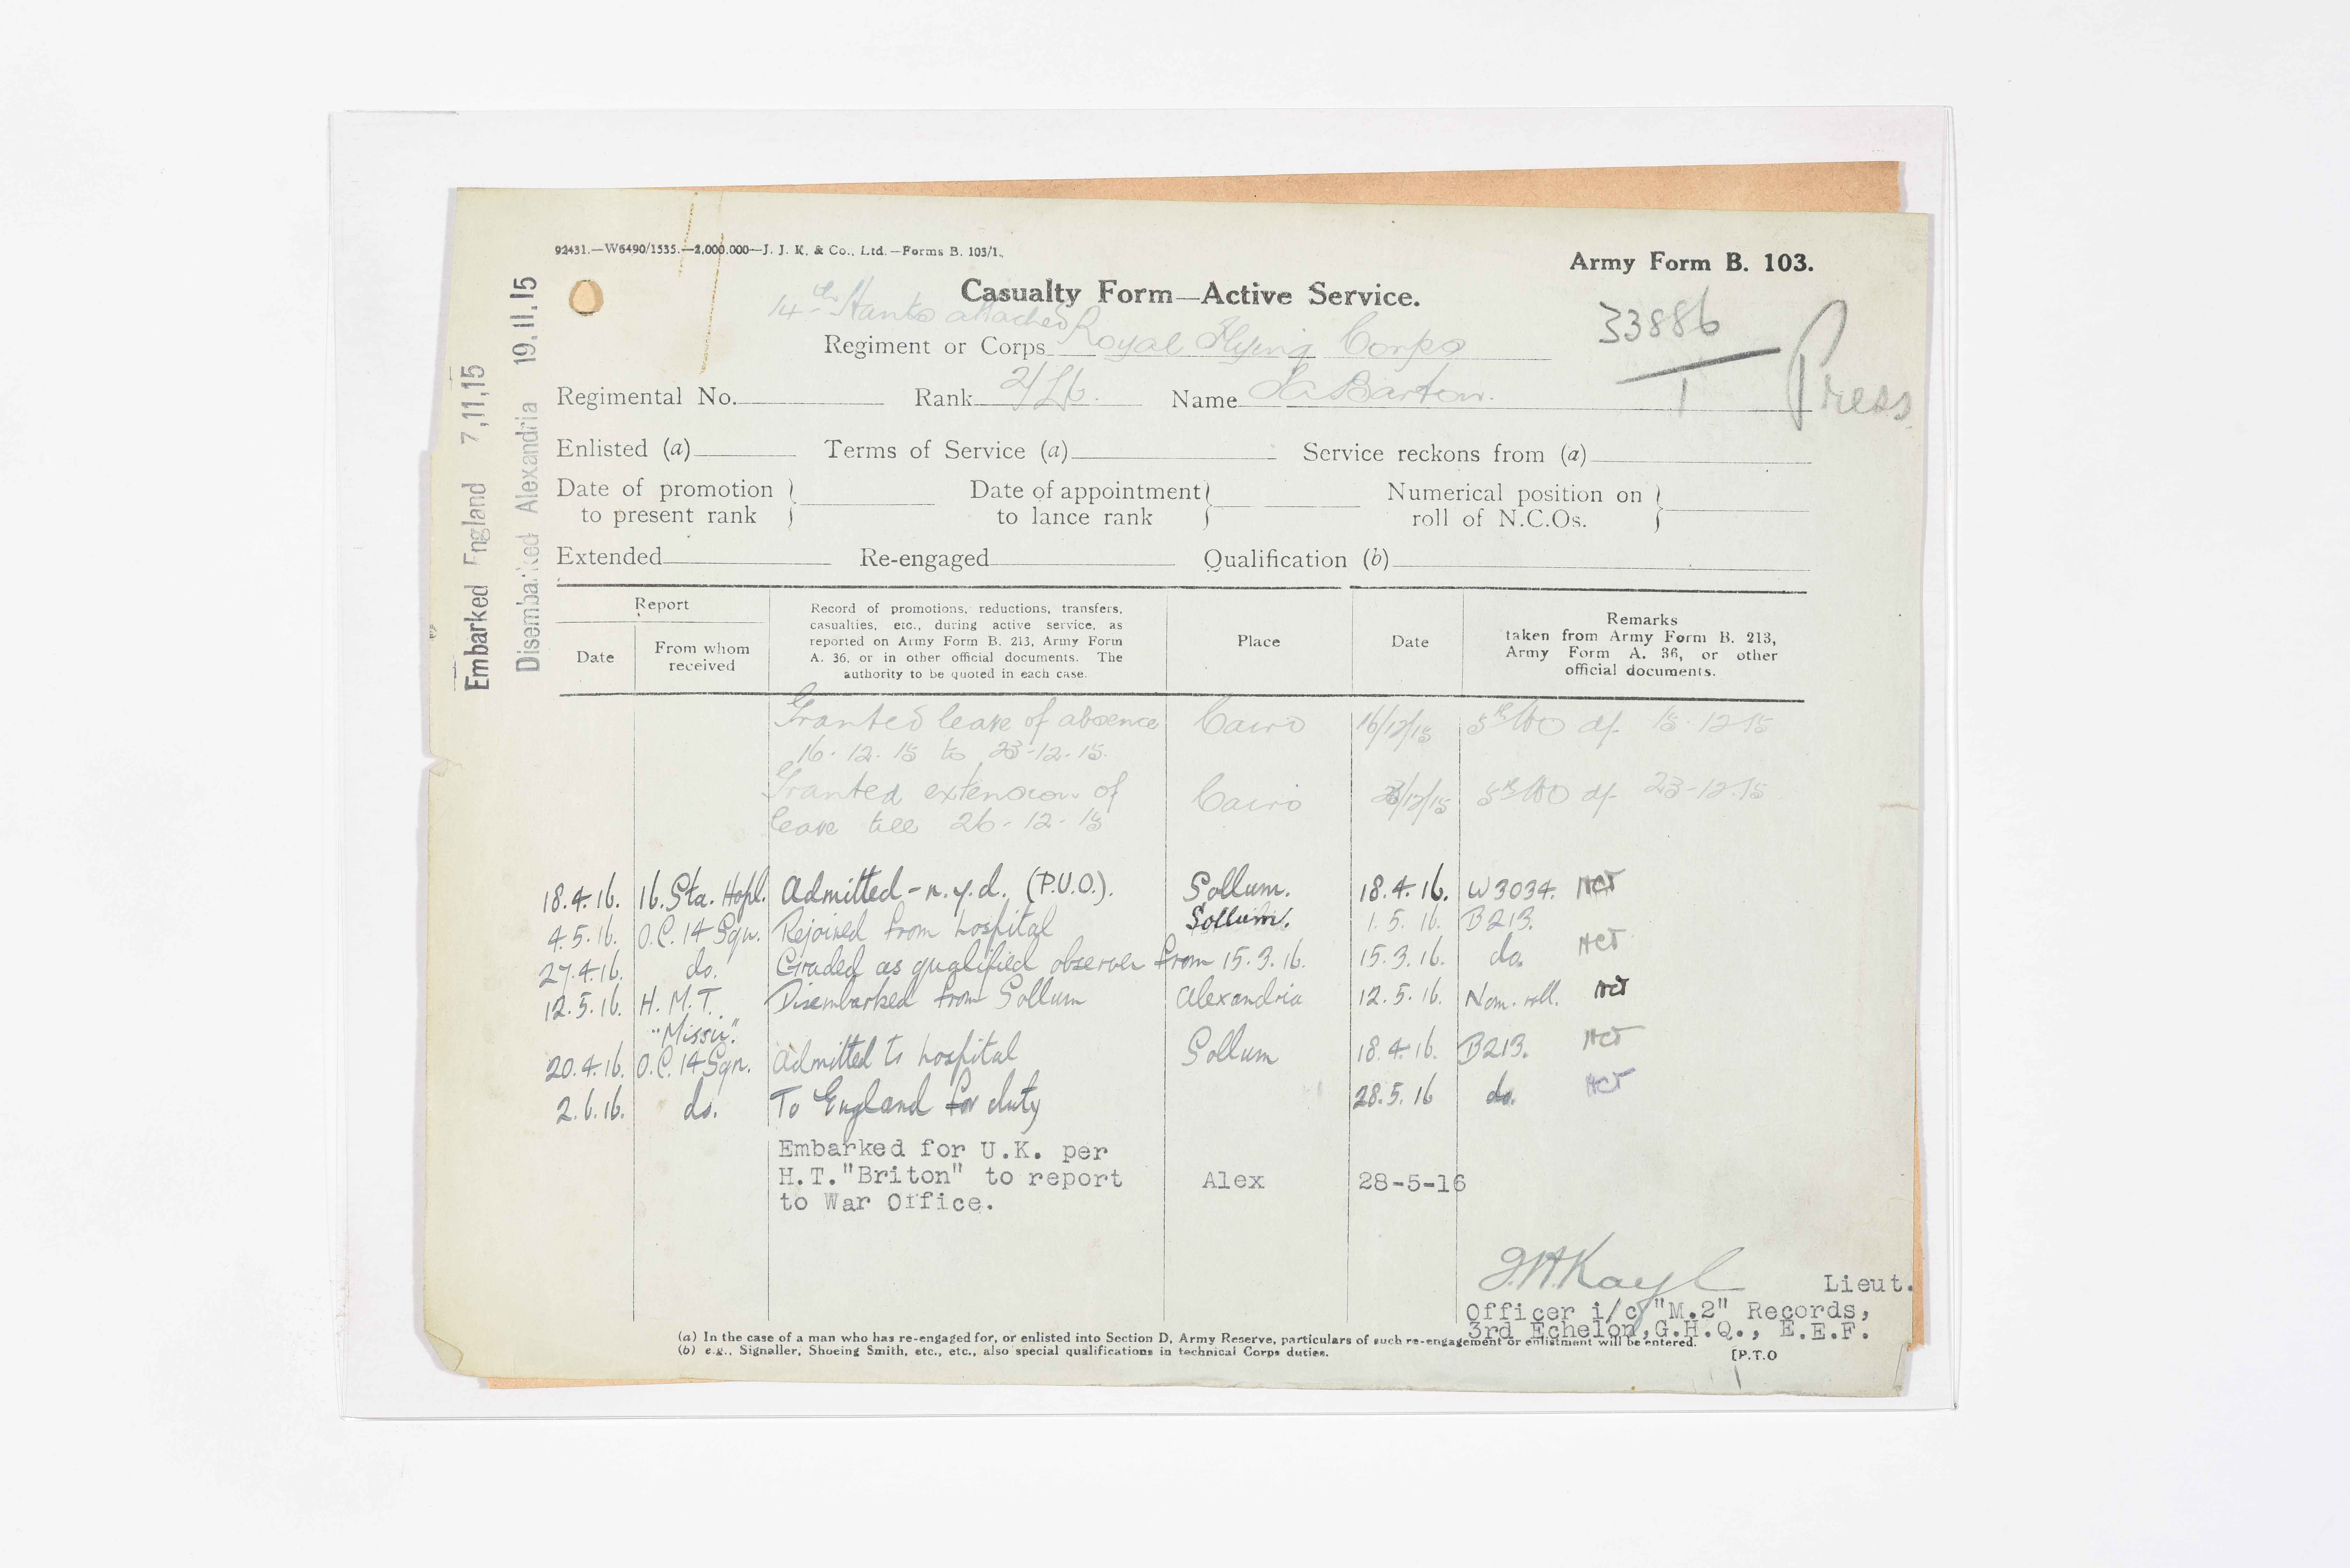 92431.—W6490/1535.—2,000,000—J. J. K. & Co., Ltd.—Forms B. 103/1.
Army Form B. 103.
Casualty Form—Active Service.
33886
1
Press
14th Hants attached
Regiment or Corps Royal Flying Corps
Regimental No. Rank 2/Lt. Name Barton.
Enlisted (a) Terms of Service (a) Service reckons from (a)
Date of promotion to present rank } Date of appointment to lance rank } Numerical position on roll of N.C.Os. }
Extended Re-engaged Qualification (b)
Embarked England 7,11,15
Disembarked Alexandria 19.11.15
Report
Date
From whom received
Record of promotions, reductions, transfers,
casualties, etc., during active service, as
reported on Army Form B. 213, Army Form
A. 36, or in other official documents. The
authority to be quoted in each case.
Place
Date
Remarks
taken from Army Form B. 213,
Army Form A. 36, or other
official documents.
Granted leave of absence Cairo 16/12/15 df 15-12-15
16-12-15 to 23-12-15.
Granted extension of Cairo 23/12/15 df 23-12-15
leave till 26-12-15
18.4.16. 16. Sta. Hopl. Admitted - n.y.d. (P.U.O.). Sollum. 18.4.16. W3034. HCT
4.5.16. O.C. 14 Sqn. Rejoined from hospital Sollum. 1.5.16. B213.
27.4.16. do. Graded as qualified observer from 15.3.16. 15.3.16. do. HCT
12.5.16. H.M.T. Disembarked from Sollum Alexandria 12.5.16. Nom. roll. HCT
"Missir."
20.4.16. O.C. 14 Sqn. Admitted to hospital Sollum 18.4.16. B213. HCT
2.6.16. do. To England for duty 28.5.16 do. HCT
Embarked for U.K. per
H.T."Briton" to report Alex 28-5-16
to War Office.
Lieut.
Officer i/c "M.2" Records,
3rd Echelon,G.H.Q., E.E.F.
(a) In the case of a man who has re-engaged for, or enlisted into Section D, Army Reserve, particulars of such re-engagement or enlistment will be entered.
(b) e.g., Signaller, Shoeing Smith, etc., etc., also special qualifications in technical Corps duties.
[P.T.O